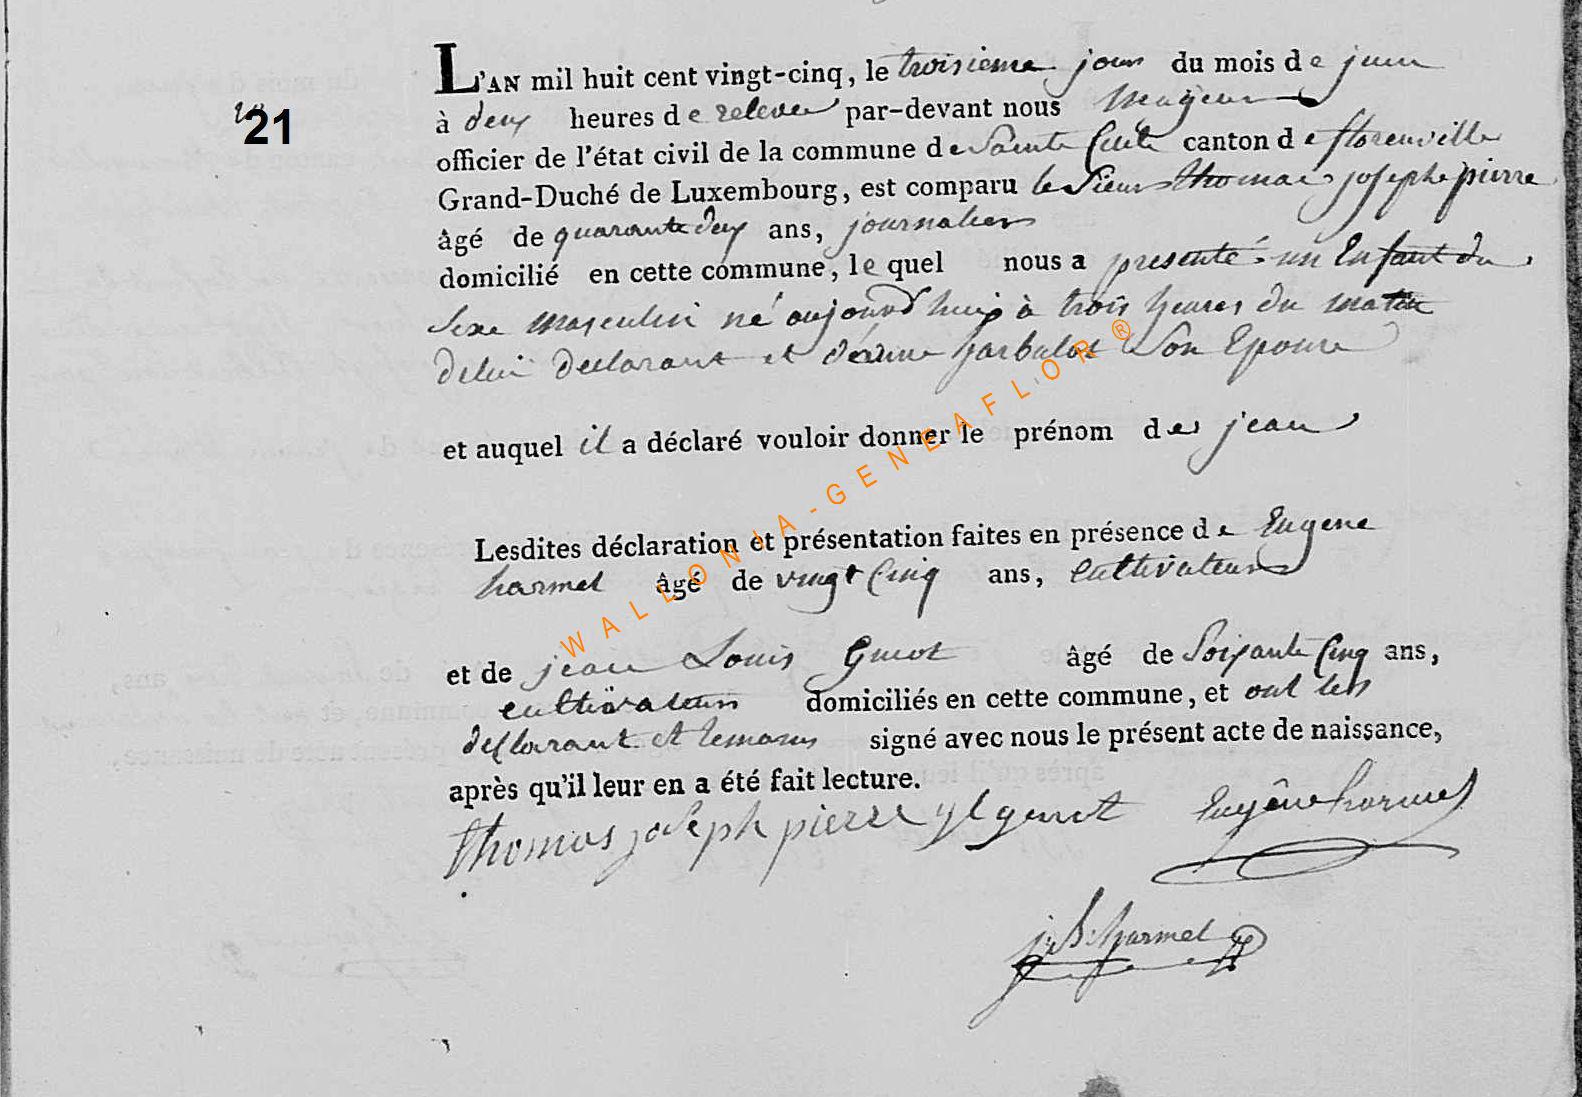 L'AN mil huit cent vingt-cinq, le troisieme jour du mois de juin
21
à deux heures de relevée par-devant nous Mayeur
officier de l'état civil de la commune de Sainte Cecile canton de florenville
Grand-Duché de Luxembourg, est comparu le Sieur thomas josephe pierre
âgé de quarante deux ans, journalier
domicilié en cette commune, lequel nous a presenté un Enfant du
Sexe Masculin né aujourd'huis à trois heures du matin
de lui declarant et Son Epouse
et auquel il a déclaré vouloir donner le prénom de jean
Lesdites déclaration et présentation faites en présence de Eugene
harmel âgé de vingt Cinq ans, Cultivateur
et de jean Louis Guiot âgé de Soixante Cinq ans,
cultivateur domiciliés en cette commune, et ont les
declarant et temoins signé avec nous le présent acte de naissance,
après qu'il leur en a été fait lecture.
thomas joseph pierre Eugêne harmel
j: B: harmel
WALLONIA-GENEAFLOR®